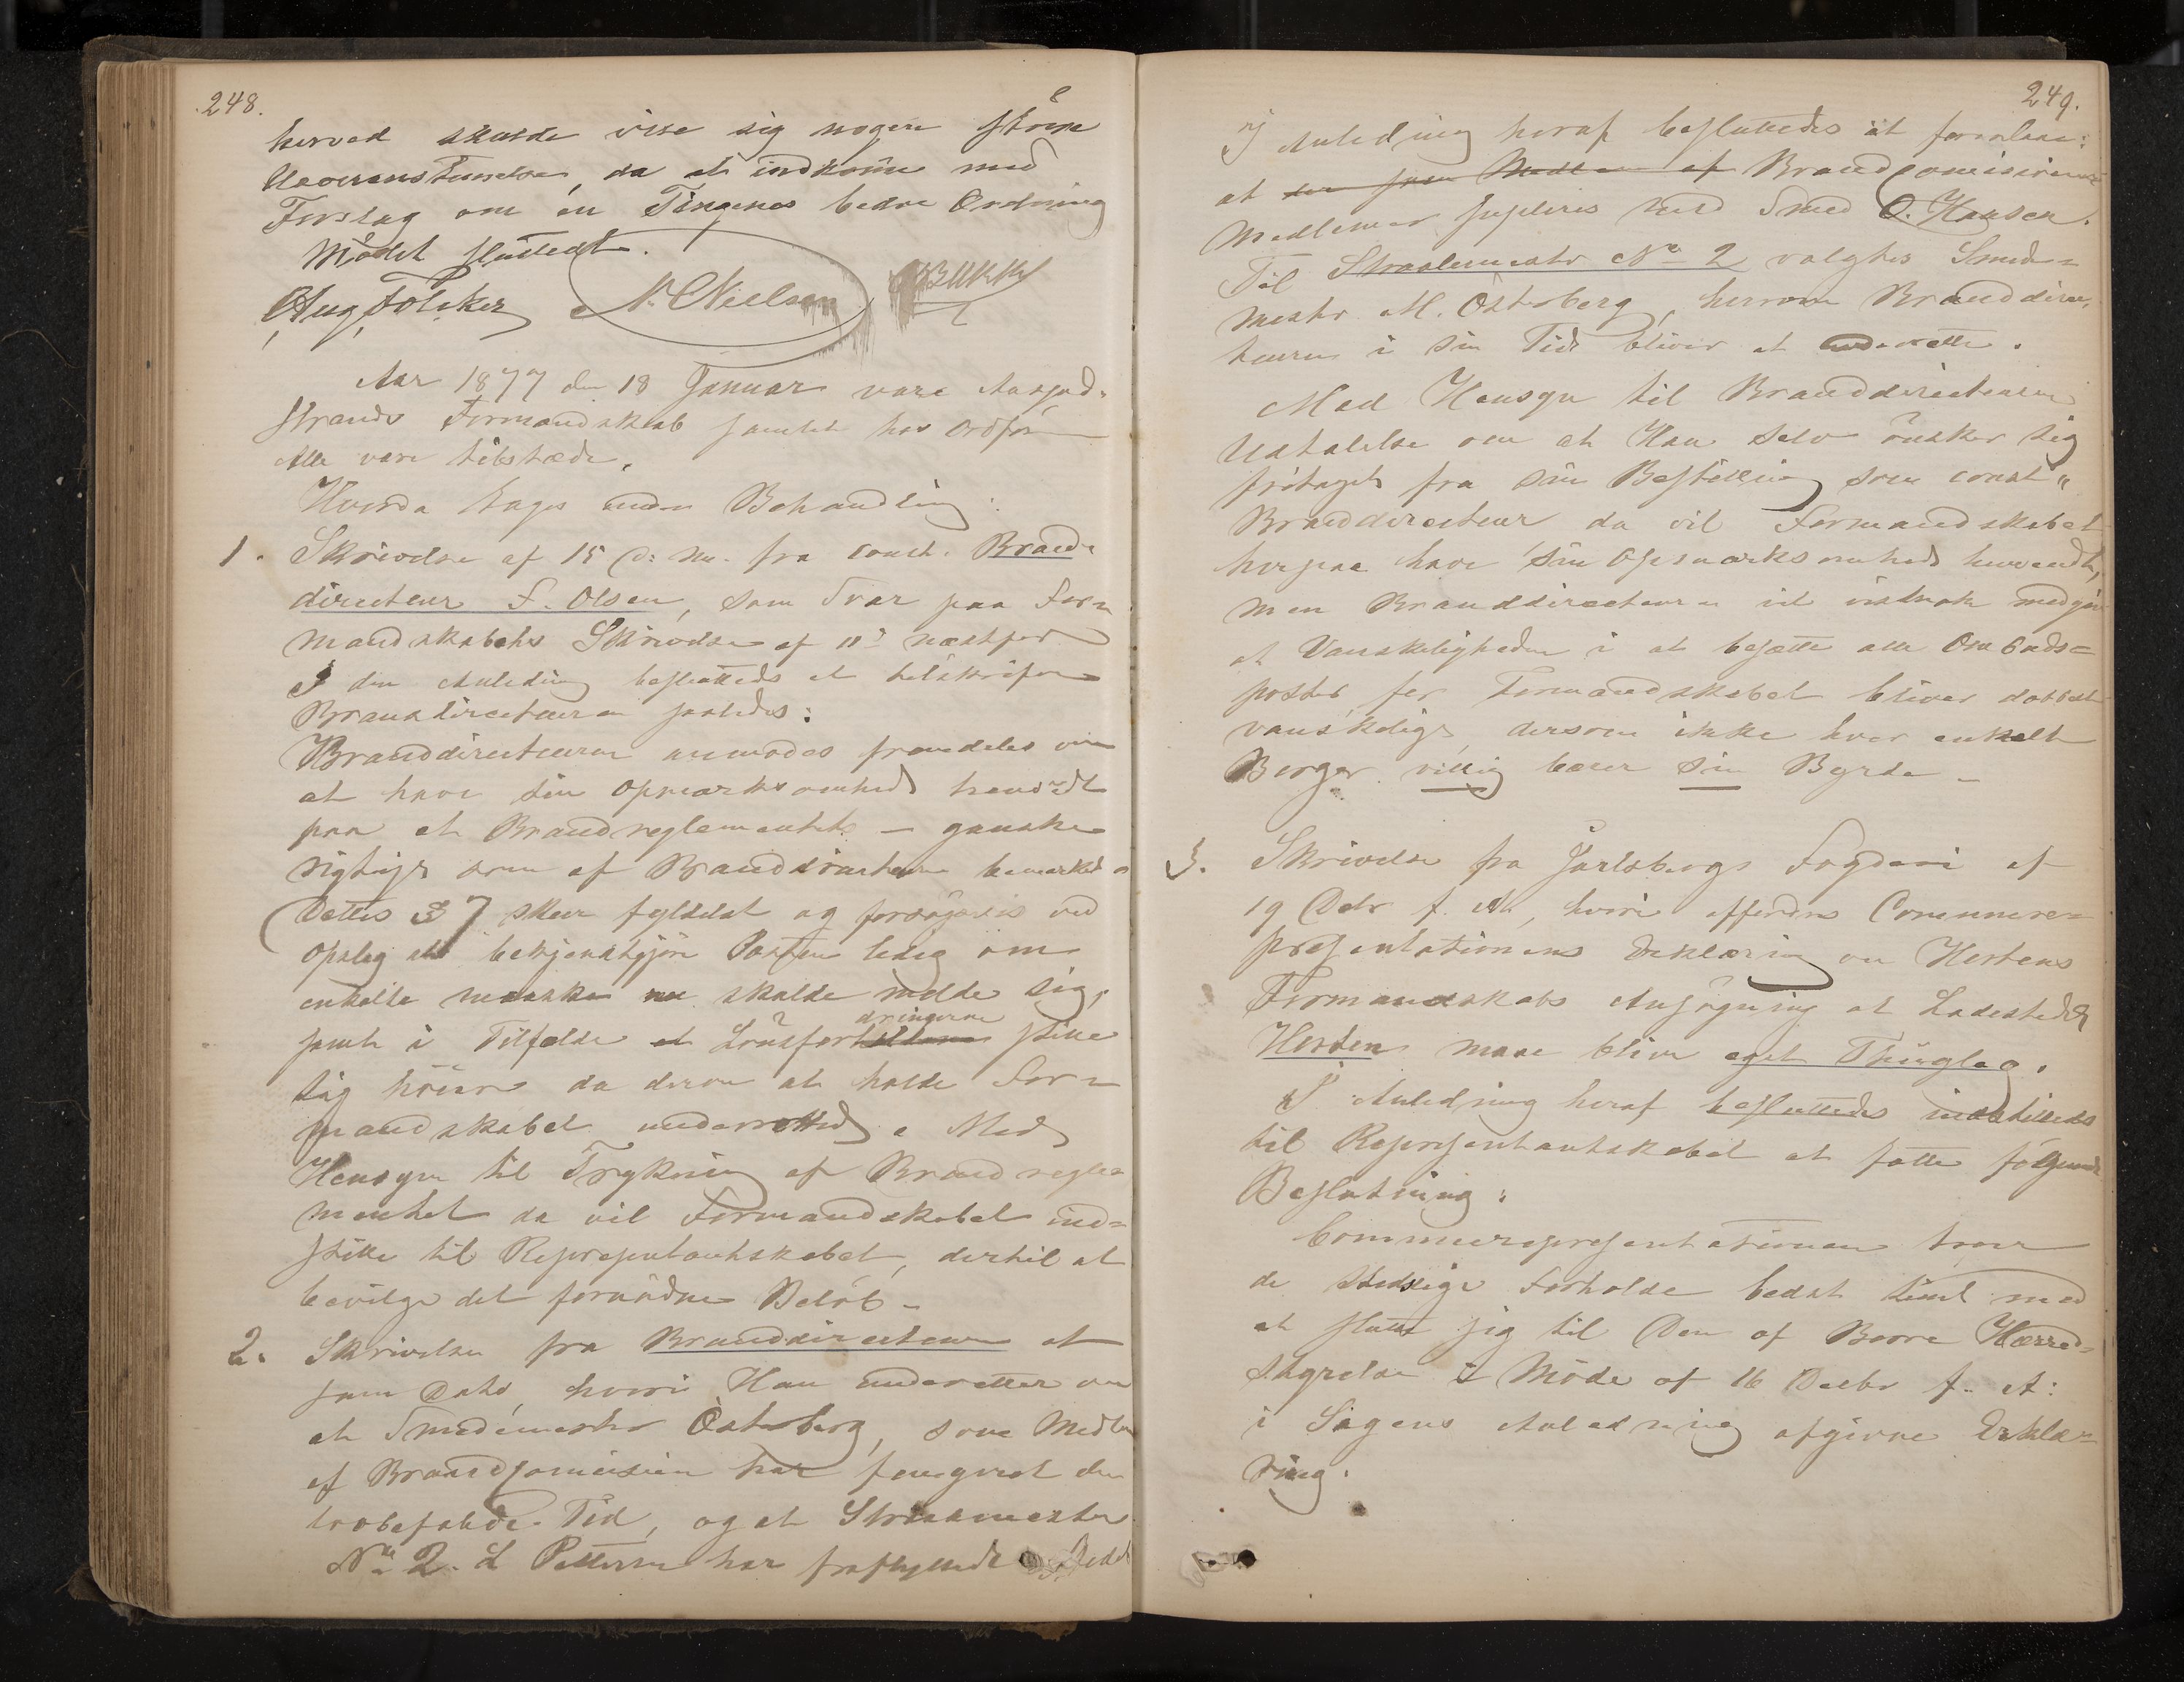 248.
herved skulde vise sig nogen større
Uoverenstemmelse, da at indkomme med
Forslag om en Tingenes bedre Ordning
Mødet sluttedt.
Aug Fölcker N. Nielsen
Aar 1877 den 18 Januar vare Aasgaard-
strands Formandskab samlet hos Ordfør
Alle vare tilstæde.
Hvorda toges under Behandling:
1. Skrivelse af 15 d: M. fra const. Brand-
directeur F. Olsen, som Svar paa For-
mandskabets Skrivelse af 11 næstfør
I den Anledning besluttedes at tilskrive
Branddirecteuren saaledes:
Branddirecteuren anmodes fremdeles om
at have sin Opmærksomhed henvendt
paa at Brandreglementets – ganske
rigtigt som af Branddirecteuren bemærket
Dettes § 7 skeer fyldest og forsøgsvis ved
Opslag at bekjendtgjøre Posten ledig om
enkelte maaske skulde melde sig,
samt i Tilfælde at Lønsfordringerne stille
sig høiere da derom at holde For-
mandskabet underrettet. Med
Hensyn til Trykning af Brandregle-
mentet da vil Formandskabet ind-
stille til Representantskabet, dertil at
bevilge det fornødne Beløb –
2. Skrivelse fra Branddirecteuren af
samme Dato, hvori Han underretter om
at Smedemester Østerberg, som Medlem
af Brandcomissionen har fungeret den
lovbefalede Tid, og at Straalemester
No 2. L Pettersen har fraflyttedt Stedet
249.
I Anledning heraf besluttedes at foreslaae:
at Brandcomissionens
Medlemmer supleres med Smed O. Hansen.
Til Straalemester No 2 valgtes Smede-
mester M. Østerberg, hvorom Branddirec-
teuren i sin Tid bliver at underrette.
Med Hensyn til Branddirecteurens
Udtalelse om at Han selv ønsker sig
fritaget fra sin Bestilling som const.
Branddirecteur da vil Formandskabet
herpaa have sin Opmærksomhed henvendt,
men Branddirecteuren vil vistnok medgive
at Vanskeligheden i at besætte alle Ombuds-
poster, for Formandskabet bliver dobbelt
vanskeligt, dersom ikke hver enkelt
Borger villig bærer sin Byrde –
3. Skrivelse fra Jarlsbergs Fogderi af
19 Debr f. A, hvori affordres Communere-
presentationens Erklæring om Hortens
Formandskabs Ansøgning at Ladestedet
Horten maae blive eget Thinglag.
I Anledning heraf besluttedes indstilledes
til Representantskabet at fatte følgende
Beslutning:
Communerepresentationen troer
de stedlige Forholde bedst tient med
at slutte sig til Den af Borre Herred-
styrelse i Møde af 16 Decbr f. A:
i Sagens Anledning afgivne Erklæ-
ring.